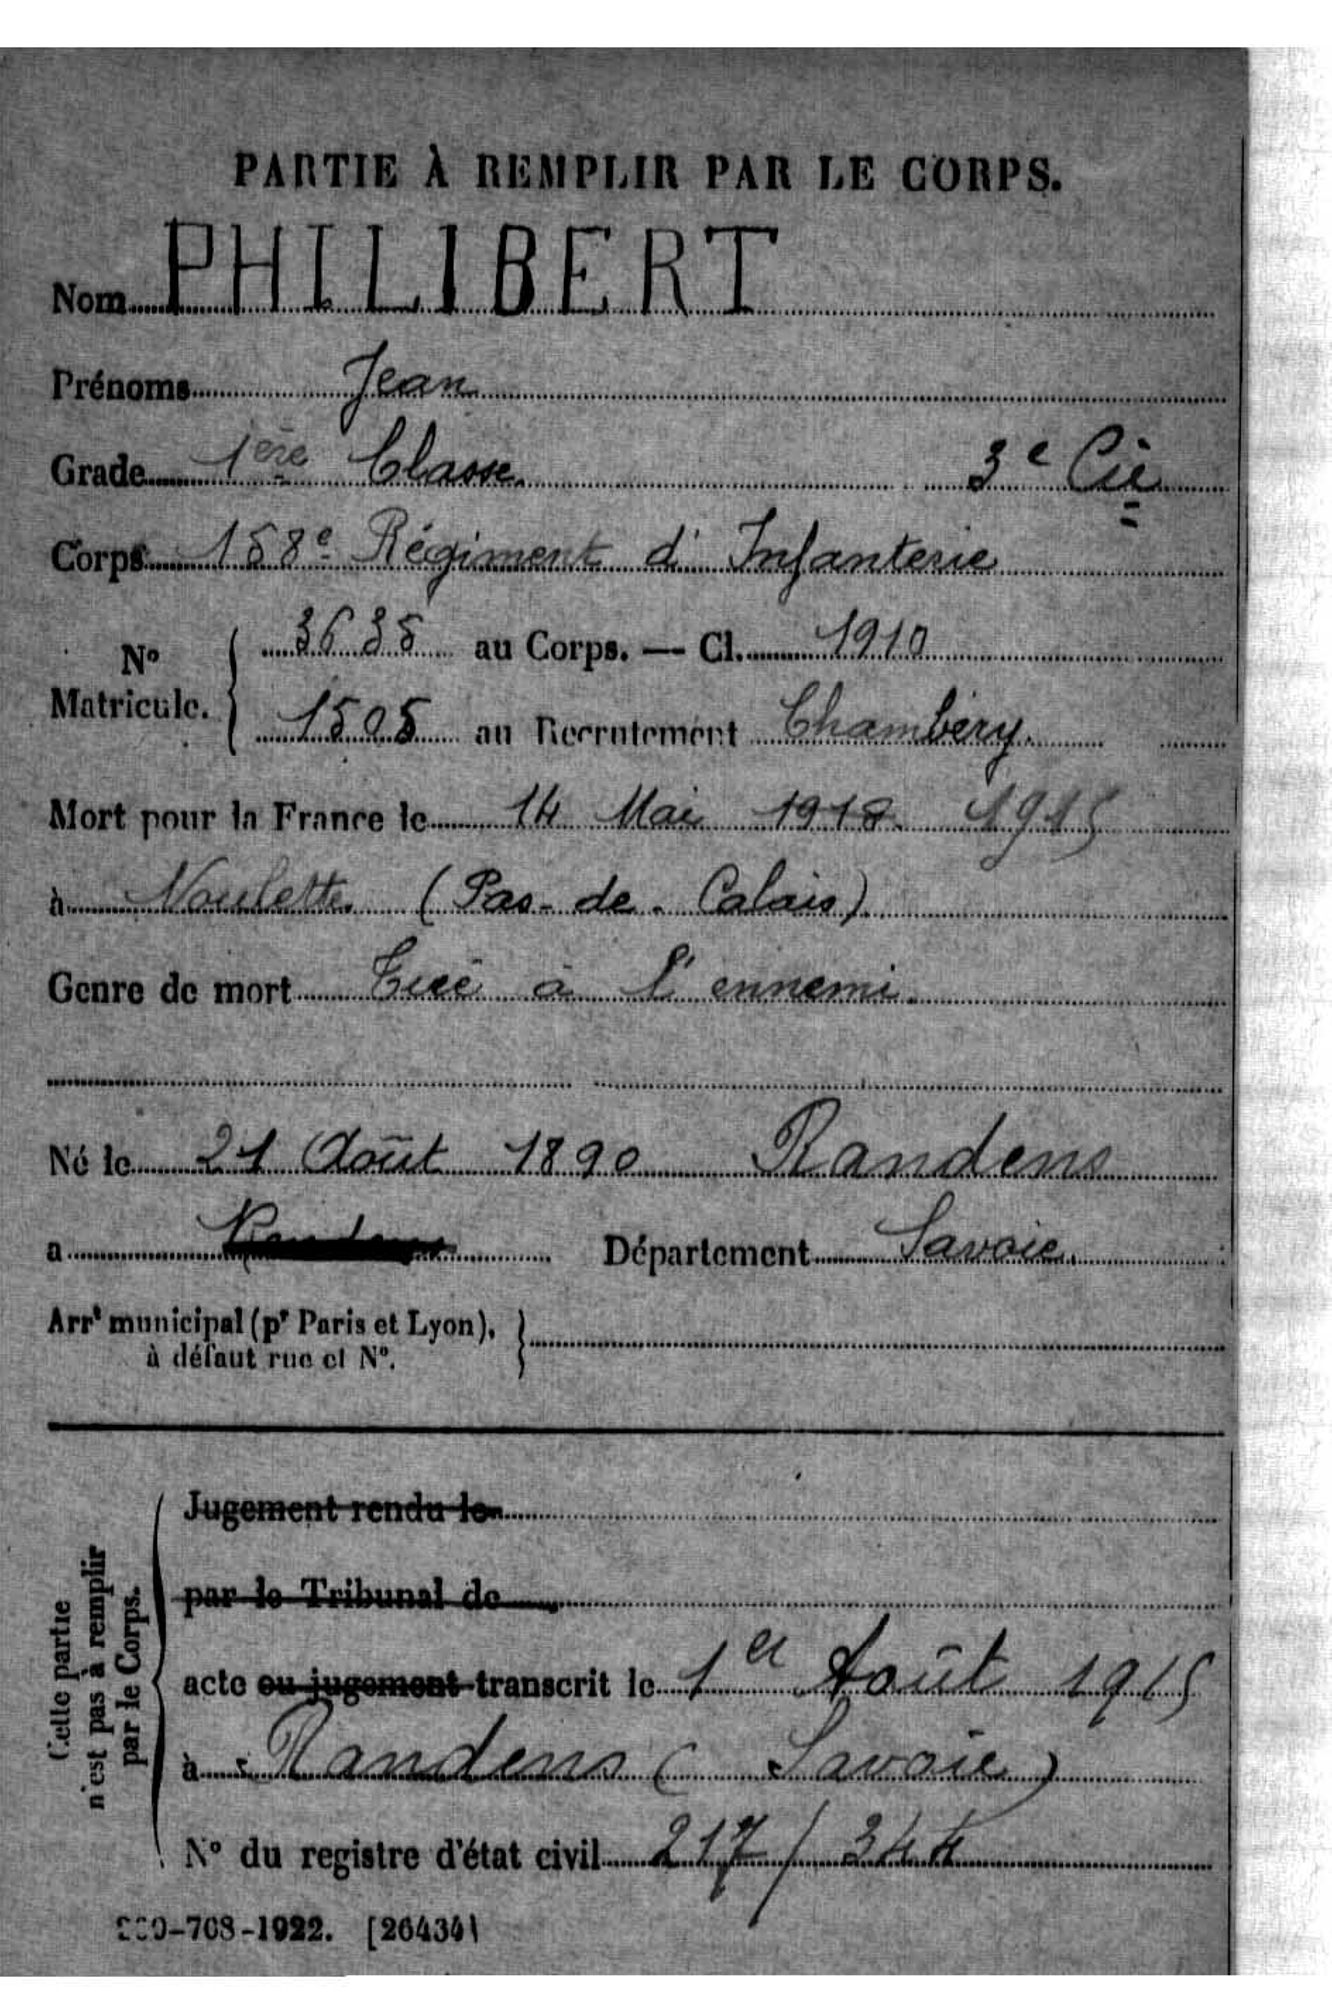 PARTIE À REMPLIR PAR LE CORPS.
Nom PHILIBERT
Prénoms Jean
Grade 1ère Classe 3e Cie
Corps 158e Régiment d' Infanterie
N° Matricule. 3635 au Corps. — Cl. 1910
1505 au Recrutement Chambéry.
Mort pour la France le 14 Mai 1918 1915
à Noulette (Pas-de-Calais)
Genre de mort Tué à l'ennemi.
Né le 21 Août 1890 Randens
a Randens Département Savoie.
Arrt municipal (pr Paris et Lyon),
à défaut rue et N°.
Cette partie
n'est pas à remplir
par le Corps.
Jugement rendu le
par le Tribunal de
acte ou jugement transcrit le 1er Août 1915
à Randens (Savoie)
N° du registre d'état civil 217/344
-708-1922. [26434]